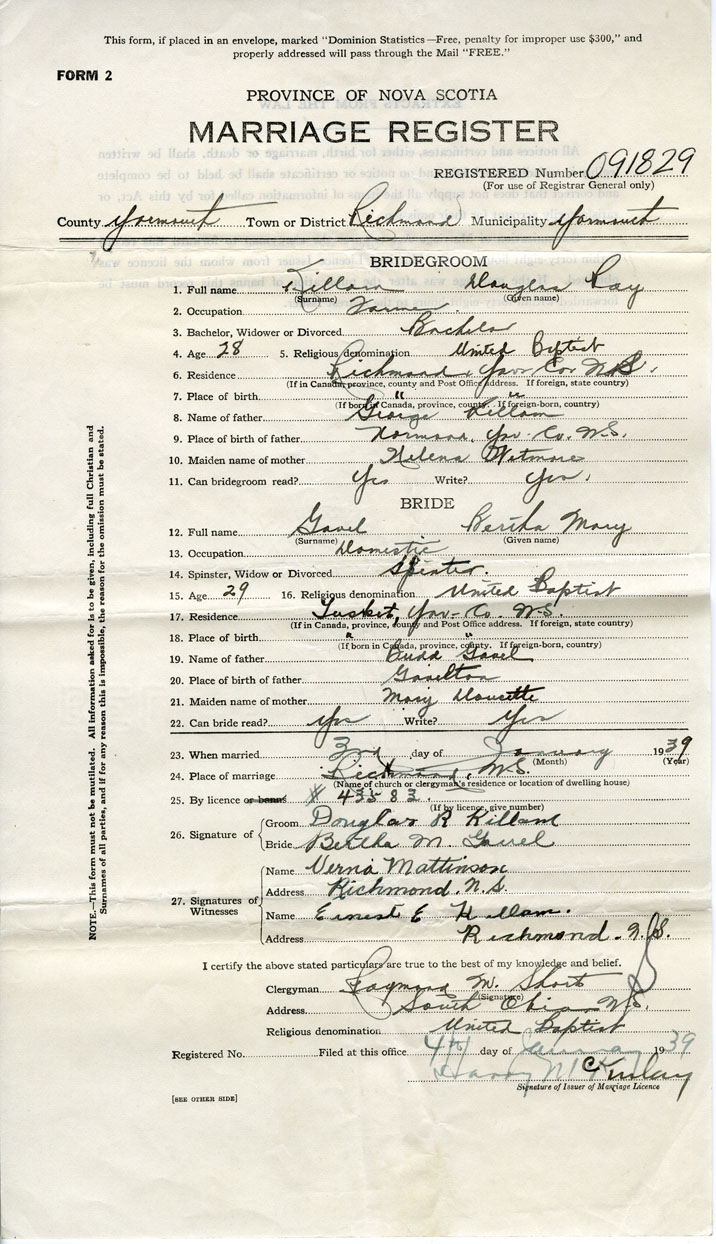 This form, if placed in an envelope, marked "Dominion Statistics—Free, penalty for improper use $300," and
properly addressed will pass through the Mail "FREE."
FORM 2
PROVINCE OF NOVA SCOTIA
MARRIAGE REGISTER
REGISTERED Number 091829
(For use of Registrar General only)
County Yarmouth Town or District Richmond Municipality Yarmouth
BRIDEGROOM
1. Full name Killam Douglas Ray
(Surname) (Given name)
2. Occupation Farmer
3. Bachelor, Widower or Divorced Bachelor
4. Age 28 5. Religious denomination United Baptist
6. Residence Richmond, Yar. Co. N.S.
(If in Canada, province, county and Post Office address. If foreign, state country)
7. Place of birth " "
(If born in Canada, province, county. If foreign-born, country)
8. Name of father George Killam
9. Place of birth of father Norwood, Yar. Co. N.S.
10. Maiden name of mother Helena Wetmore
11. Can bridegroom read? Yes Write? Yes.
BRIDE
12. Full name Gavel Bertha Mary
(Surname) (Given name)
13. Occupation Domestic
14. Spinster, Widow or Divorced Spinster.
15. Age 29 16. Religious denomination United Baptist
17. Residence Tusket, Yar. Co. N.S.
(If in Canada, province, county and Post Office address. If foreign, state country)
18. Place of birth " "
(If born in Canada, province, county. If foreign-born, country)
19. Name of father Budd Gavel
20. Place of birth of father Gavelton
21. Maiden name of mother Mary Doucette
22. Can bride read? Yes Write? Yes
23. When married 3rd day of January 1939
(Month) (Year)
24. Place of marriage Richmond, N.S.
(Name of church or clergyman's residence or location of dwelling house)
25. By licence or banns # 43583.
(If by licence, give number)
26. Signature of Groom Douglas R Killam
Bride Bertha M. Gavel
27. Signatures of Witnesses
Name Verna Mattinson
Address Richmond. N.S.
Name Ernest E Killam.
Address Richmond. N.S.
I certify the above stated particulars are true to the best of my knowledge and belief.
Clergyman Raymond W. Short
(Signature)
Address South Ohio N.S.
Religious denomination United Baptist
Registered No. Filed at this office 4th day of January 1939
Harry McKinlay
Signature of Issuer of Marriage Licence
[SEE OTHER SIDE]
NOTE.—This form must not be mutilated. All information asked for is to be given, including full Christian and
Surnames of all parties, and if for any reason this is impossible, the reason for the omission must be stated.